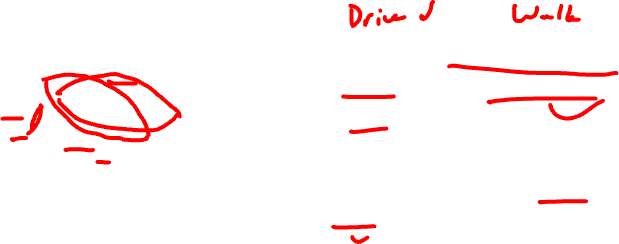 Drive Walk